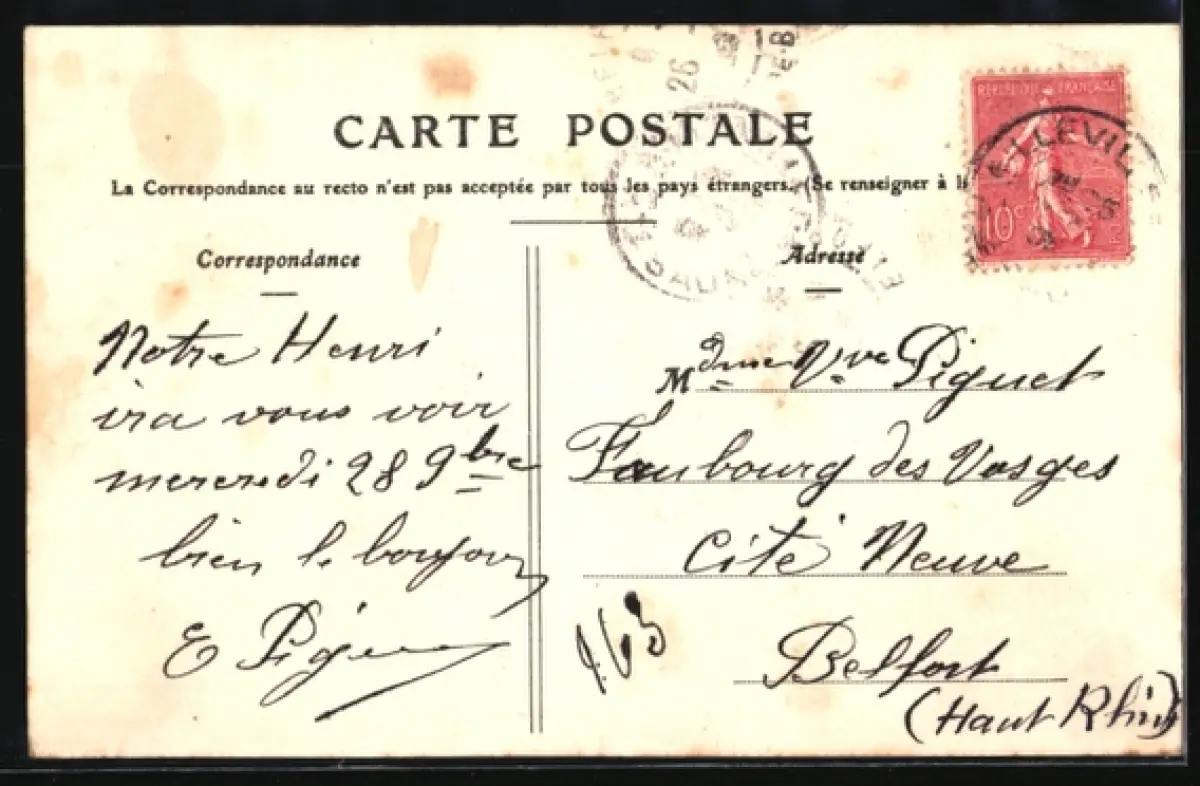 CARTE POSTALE
La Correspondance au recto n'est pas acceptée par tous les pays étrangers. (Se renseigner à la
Correspondance
Adresse
REPUBLIQUE FRANÇAISE
10 c
ELLEVIL
26
Notre Henri
ira vous voir
mercredi 28 9bre
bien le bonjour
E Pig
Mdme Vve Piguet
Faubourg des Vosges
Cité Neuve
Belfort
(Haut Rhin)